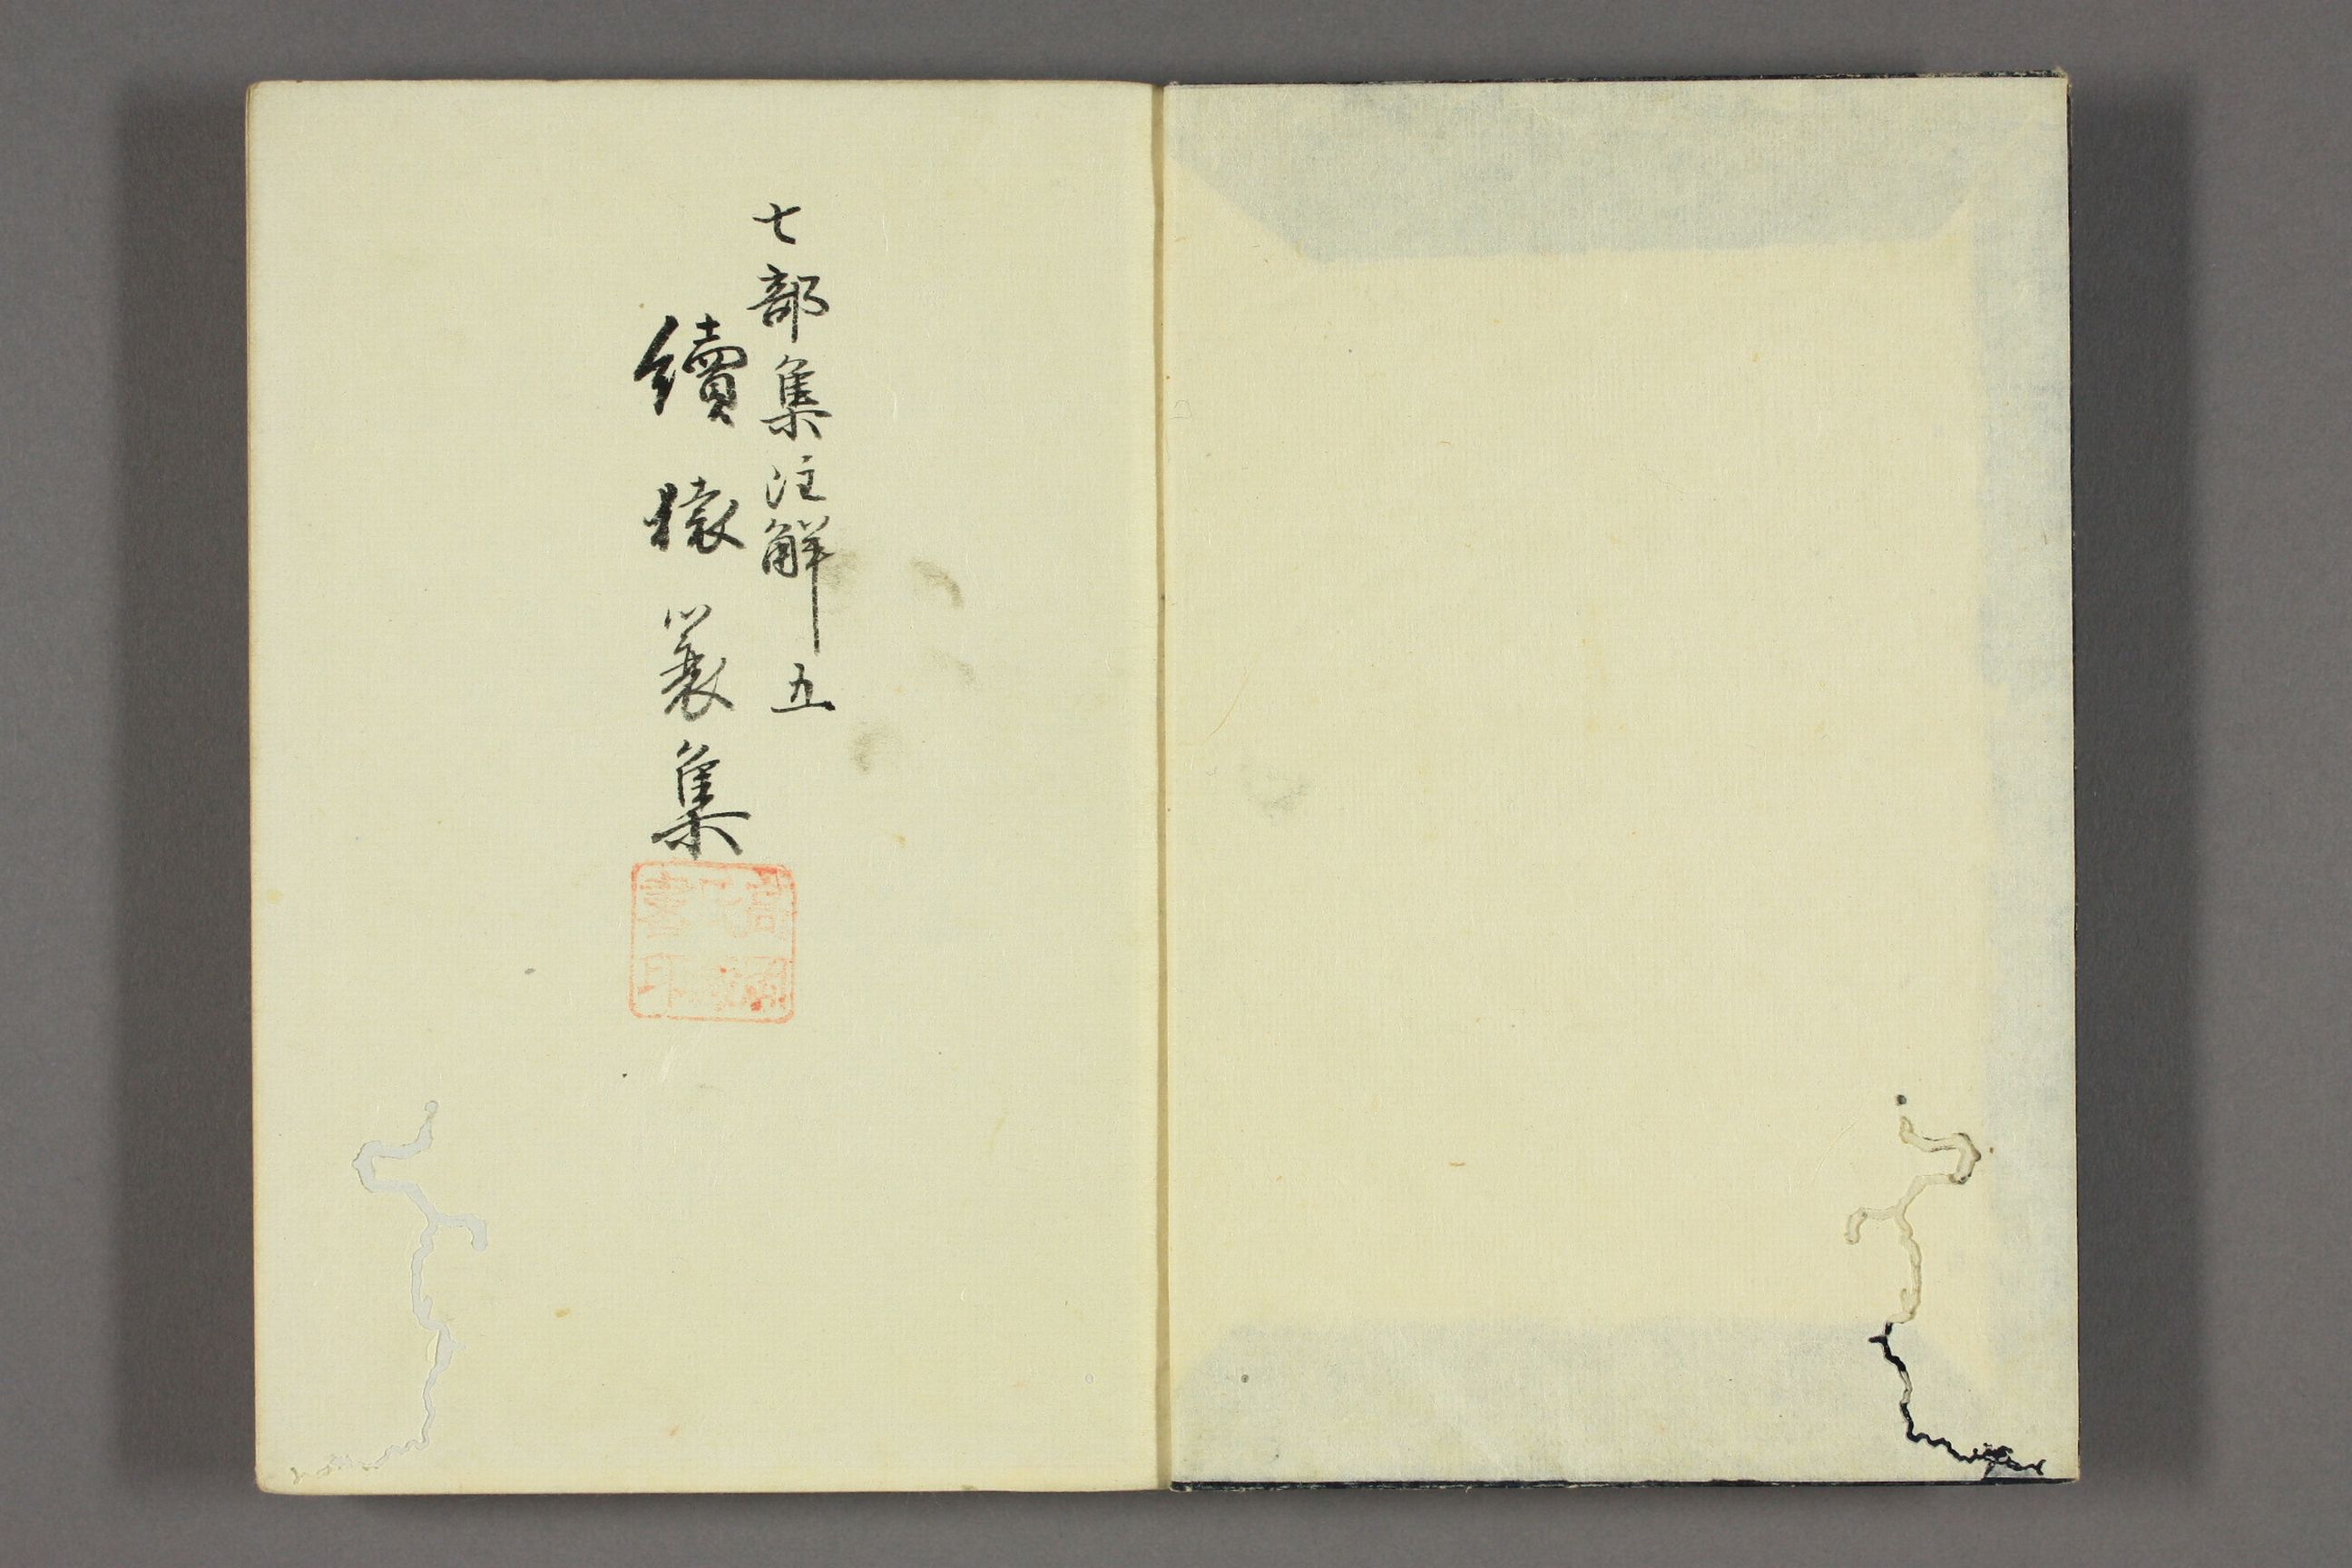 七部集注解五
續猿蓑集